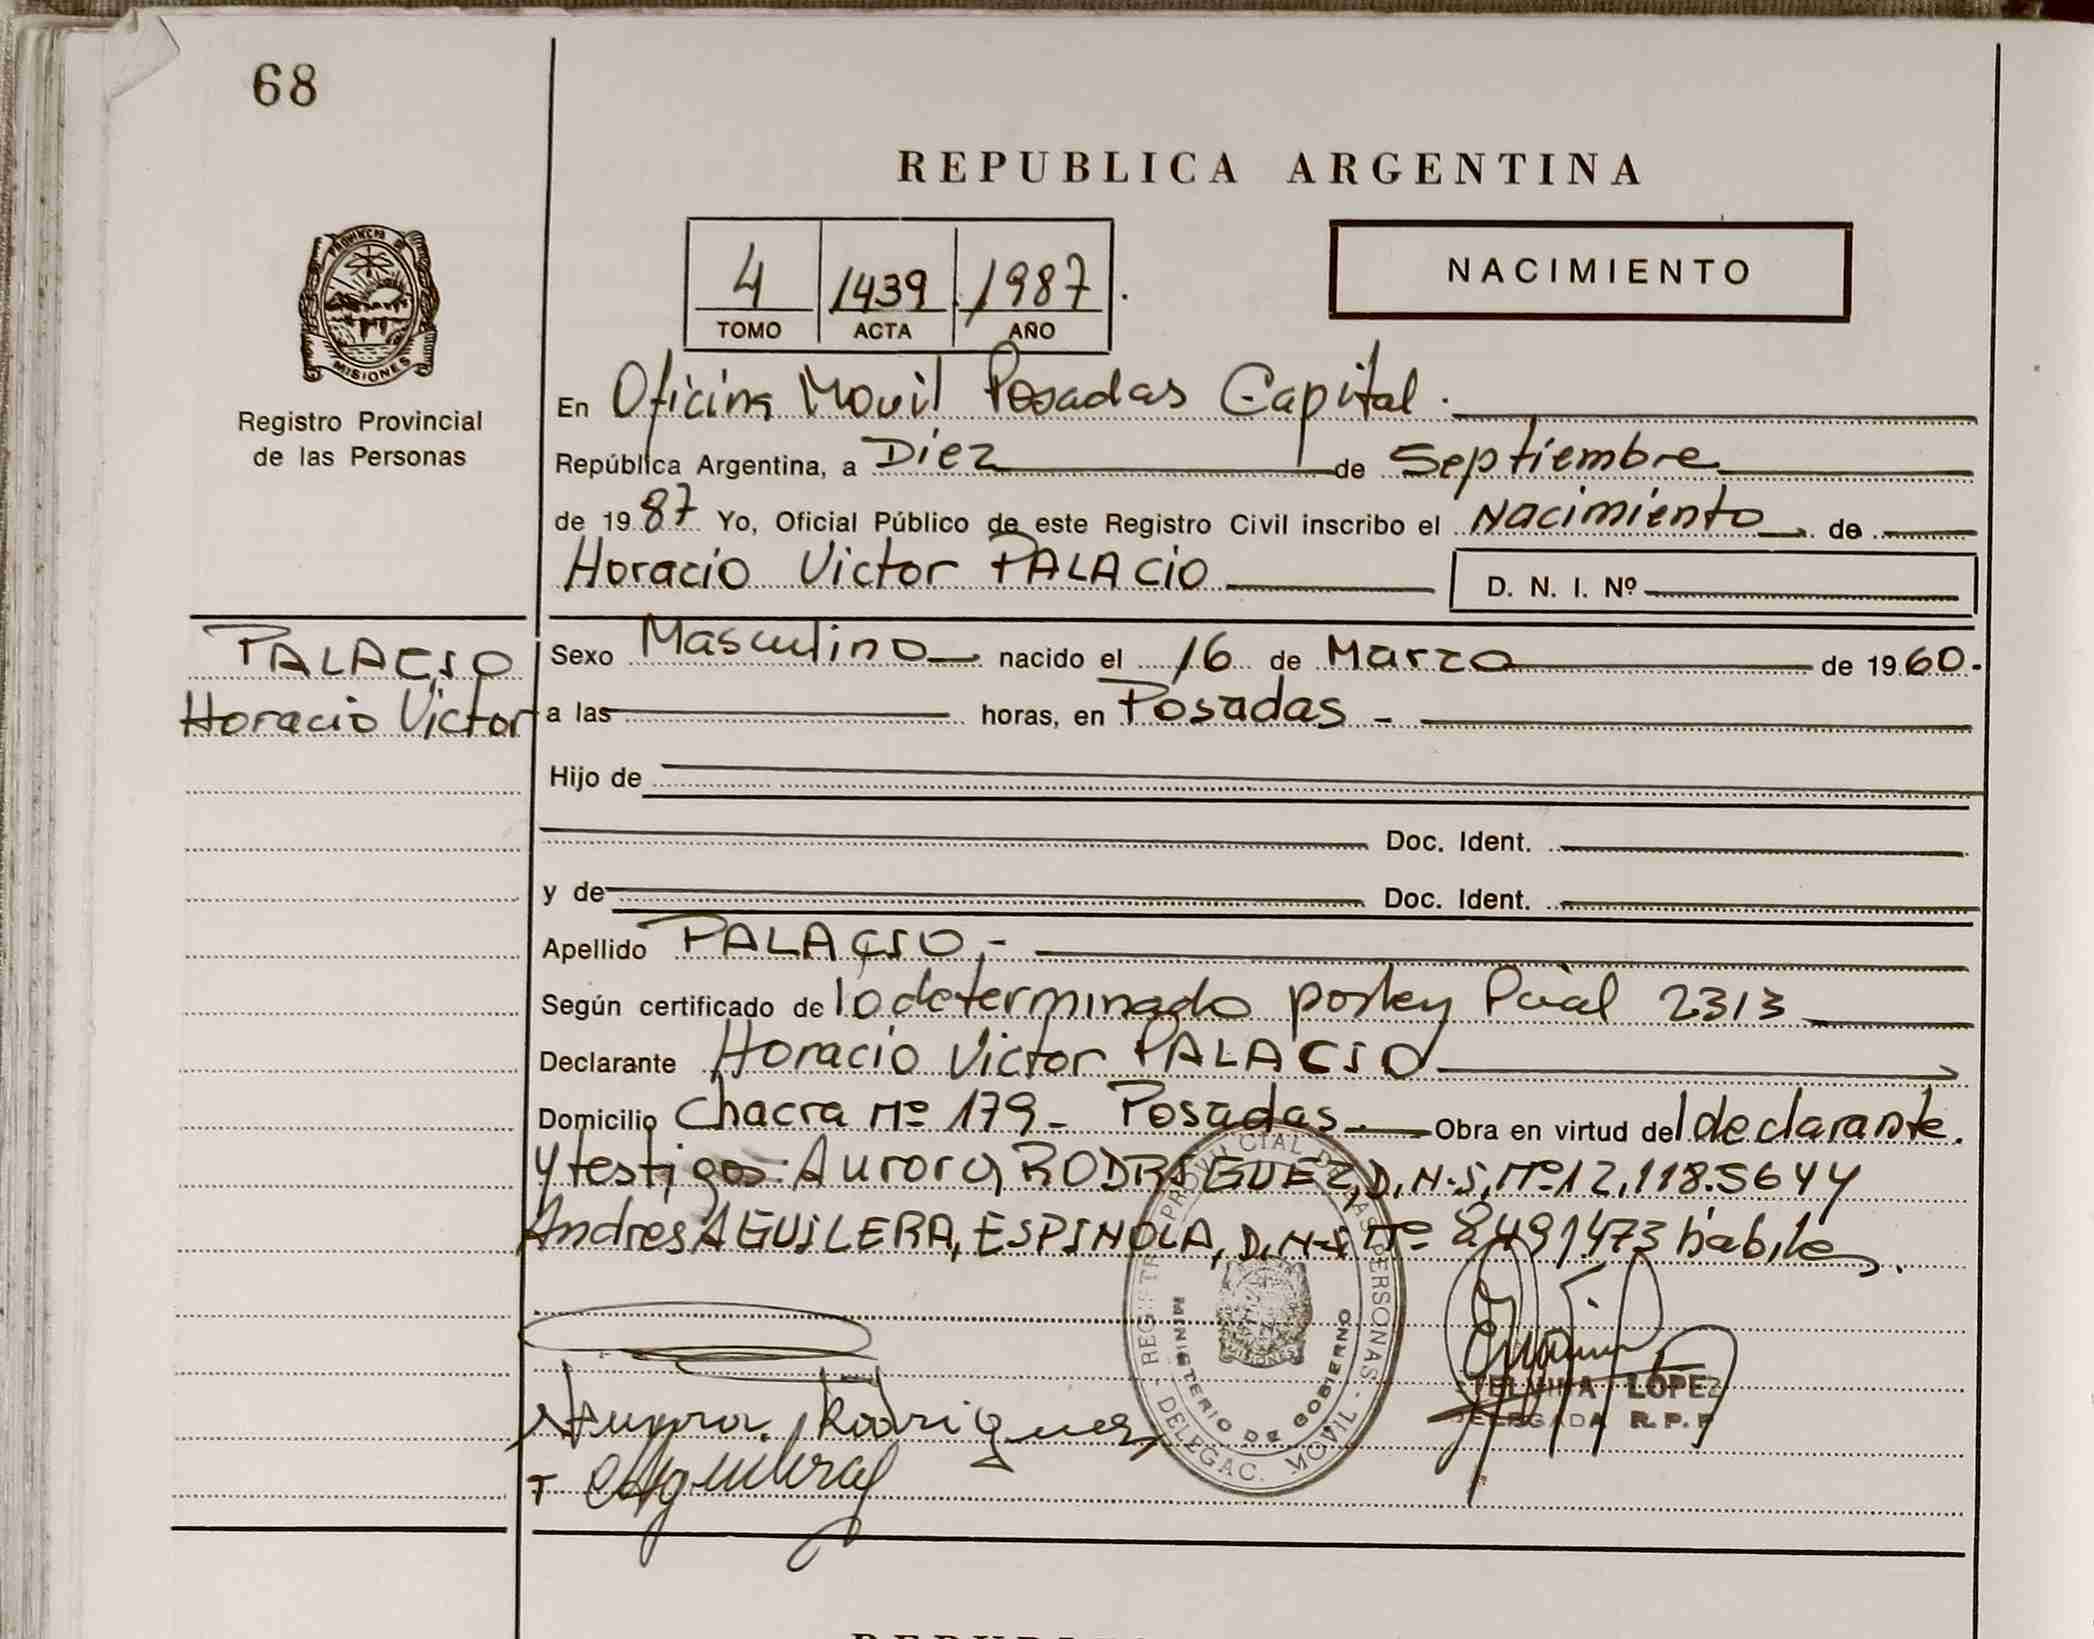 68
REPUBLICA ARGENTINA
PROVINCIA DE
MISIONES
Registro Provincial
de las Personas
4 1439 1987
TOMO ACTA AÑO
NACIMIENTO
En Oficina Movil Posadas Capital.
República Argentina, a Diez de Septiembre
de 1987 Yo, Oficial Público de este Registro Civil inscribo el Nacimiento de
Horacio Victor PALACIO D. N. I. Nº
PALACIO
Horacio Victor
Sexo Masculino nacido el 16 de Marzo de 1960.
a las horas, en Posadas -
Hijo de
Doc. Ident.
y de Doc. Ident.
Apellido PALACIO.-
Según certificado de lo determinado por ley Pcial 2313
Declarante Horacio Victor PALACIO
Domicilio Chacra Nº 179 - Posadas.- Obra en virtud del declarante.
y testigos: Aurora RODRIGUEZ, D.N.I. Nº 12.118.564 y
Andres AGUILERA, ESPINOLA, D.N.I Nº 8491473 habiles.
REGISTRO PROVINCIAL DE LAS PERSONAS - DELEGAC. MOVIL -
MINISTERIO DE GOBIERNO
MISIONES
Aurora Rodriguez
T Aguilera
TELMIRA LOPEZ
DELEGADA R. P. P